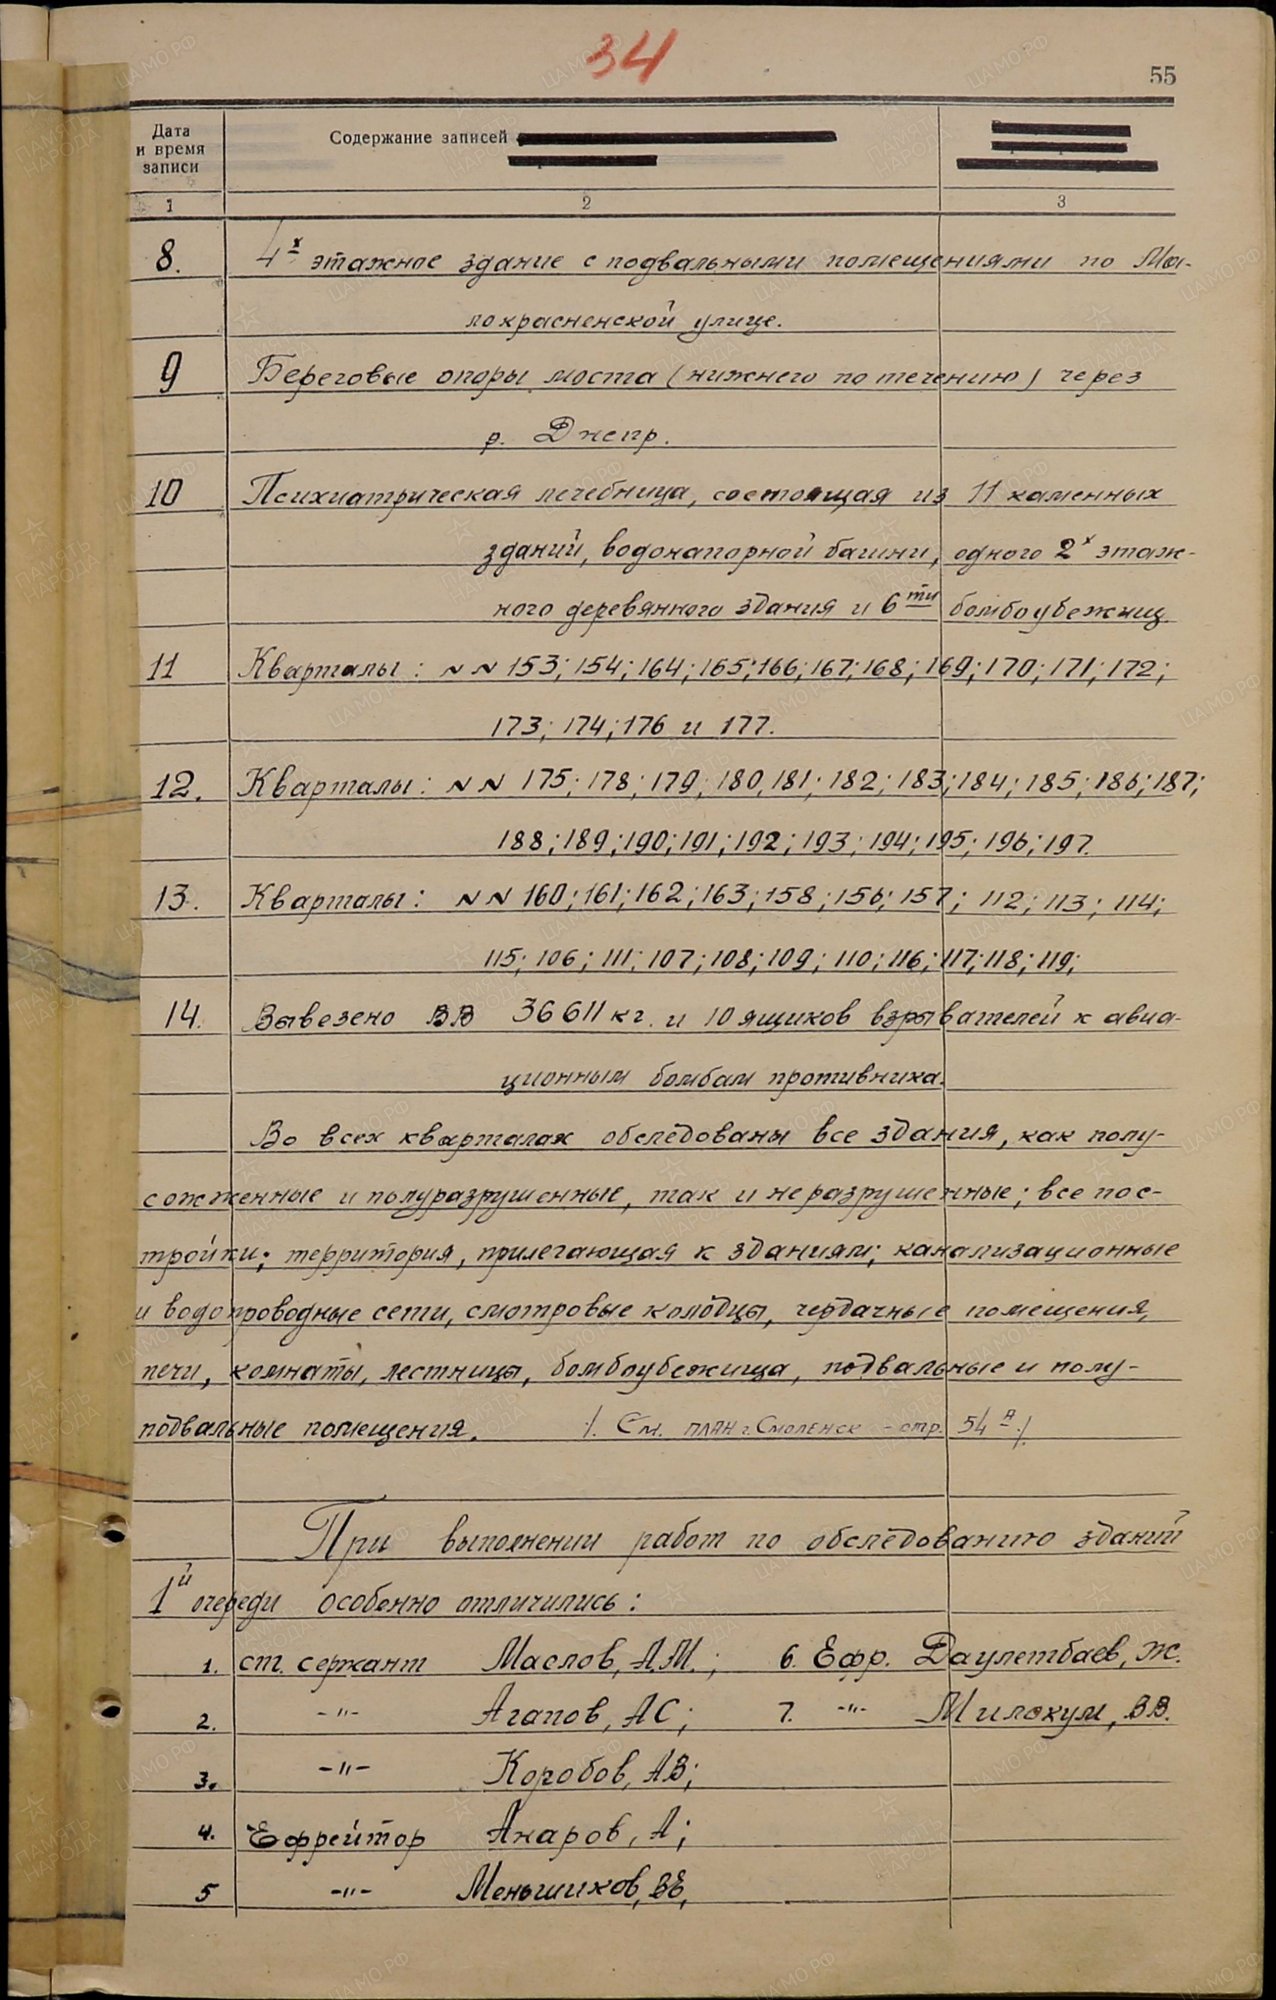 34
55
Дата
и время
записи
Содержание записей
1
2
3
8. 4х этажное здание с подвальными помещениями по Ма-
локрасненской улице.
9 Береговые опоры моста (нижнего по течению) через
р. Днепр.
10 Психиатрическая лечебница, состоящая из 11 каменных
зданий, водонапорной башни, одного 2х этаж-
ного деревянного здания и 6ти бомбоубежищ.
11 Кварталы: NN 153; 154; 164; 165; 166; 167; 168; 169; 170; 171; 172;
173; 174; 176 и 177.
12. Кварталы: NN 175; 178; 179; 180, 181; 182; 183; 184; 185; 186; 187;
188; 189; 190; 191; 192; 193; 194; 195; 196; 197.
13. Кварталы: NN 160; 161; 162; 163; 158; 156; 157; 112; 113; 114;
115; 106; 111; 107; 108; 109; 110; 116; 117; 118; 119;
14. Вывезено ВВ 36611 кг. и 10 ящиков взрывателей к авиа-
ционным бомбам противника.
Во всех кварталах обследованы все здания, как полу-
сожженные и полуразрушенные, так и неразрушенные; все пос-
тройки; территория, прилегающая к зданиям; канализационные
и водопроводные сети, смотровые колодцы, чердачные помещения,
печи, комнаты, лестницы, бомбоубежища, подвальные и полу-
подвальные помещения. /. См. план г. Смоленск - стр. 54 а ./.
При выполнении работ по обследованию зданий
1й очереди особенно отличились:
1. ст. сержант Маслов, А.М.; 6. Ефр. Даулетбаев, Ж.
2. -"- Агапов, АС; 7. -"- Милокум, ВВ.
3. -"- Коробов, АВ;
4. Ефрейтор Акаров, А;
5 -"- Меньшиков, ВЕ,
ПАМЯТЬ НАРОДА
ЦА МО РФ